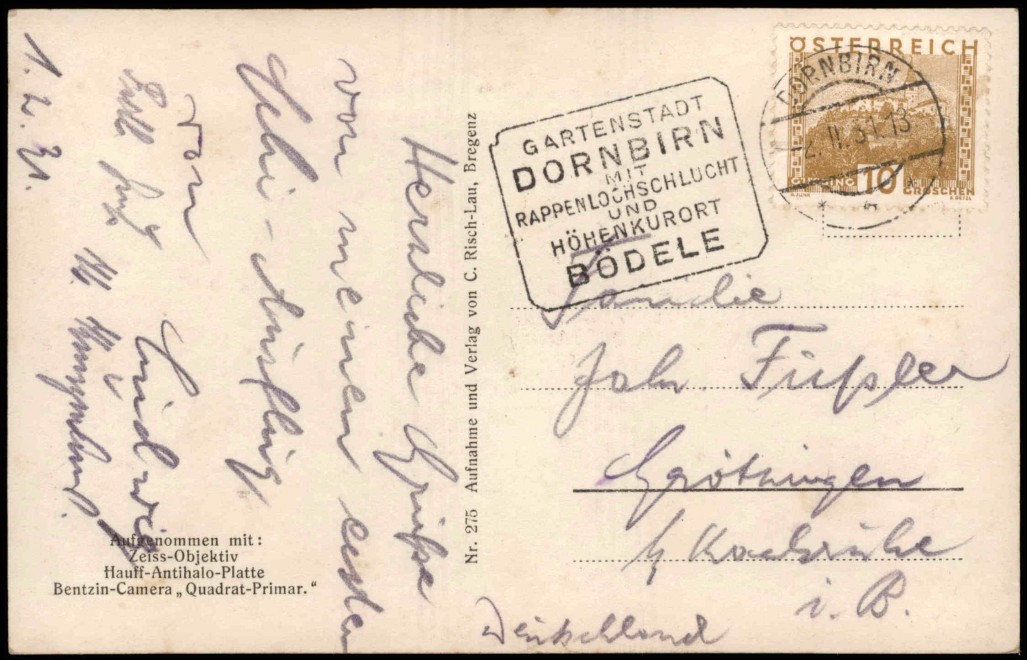 1. 2. 31.
Herzliche Grüße
von meinen ersten
Ski-Ausflug
von
Ludwig
ÖSTERREICH
10
GROSCHEN
DORNBIRN
2. II. 31. 13
GARTENSTADT
DORNBIRN
MIT
RAPPENLOCHSCHLUCHT
UND
HÖHENKURORT
BÖDELE
Nr. 275 Aufnahme und Verlag von C. Risch-Lau, Bregenz
Familie
Joh. Füßler
Grötzingen
b/ Karlsruhe
i. B.
Deutschland
Aufgenommen mit:
Zeiss-Objektiv
Hauff-Antihalo-Platte
Bentzin-Camera „Quadrat-Primar."